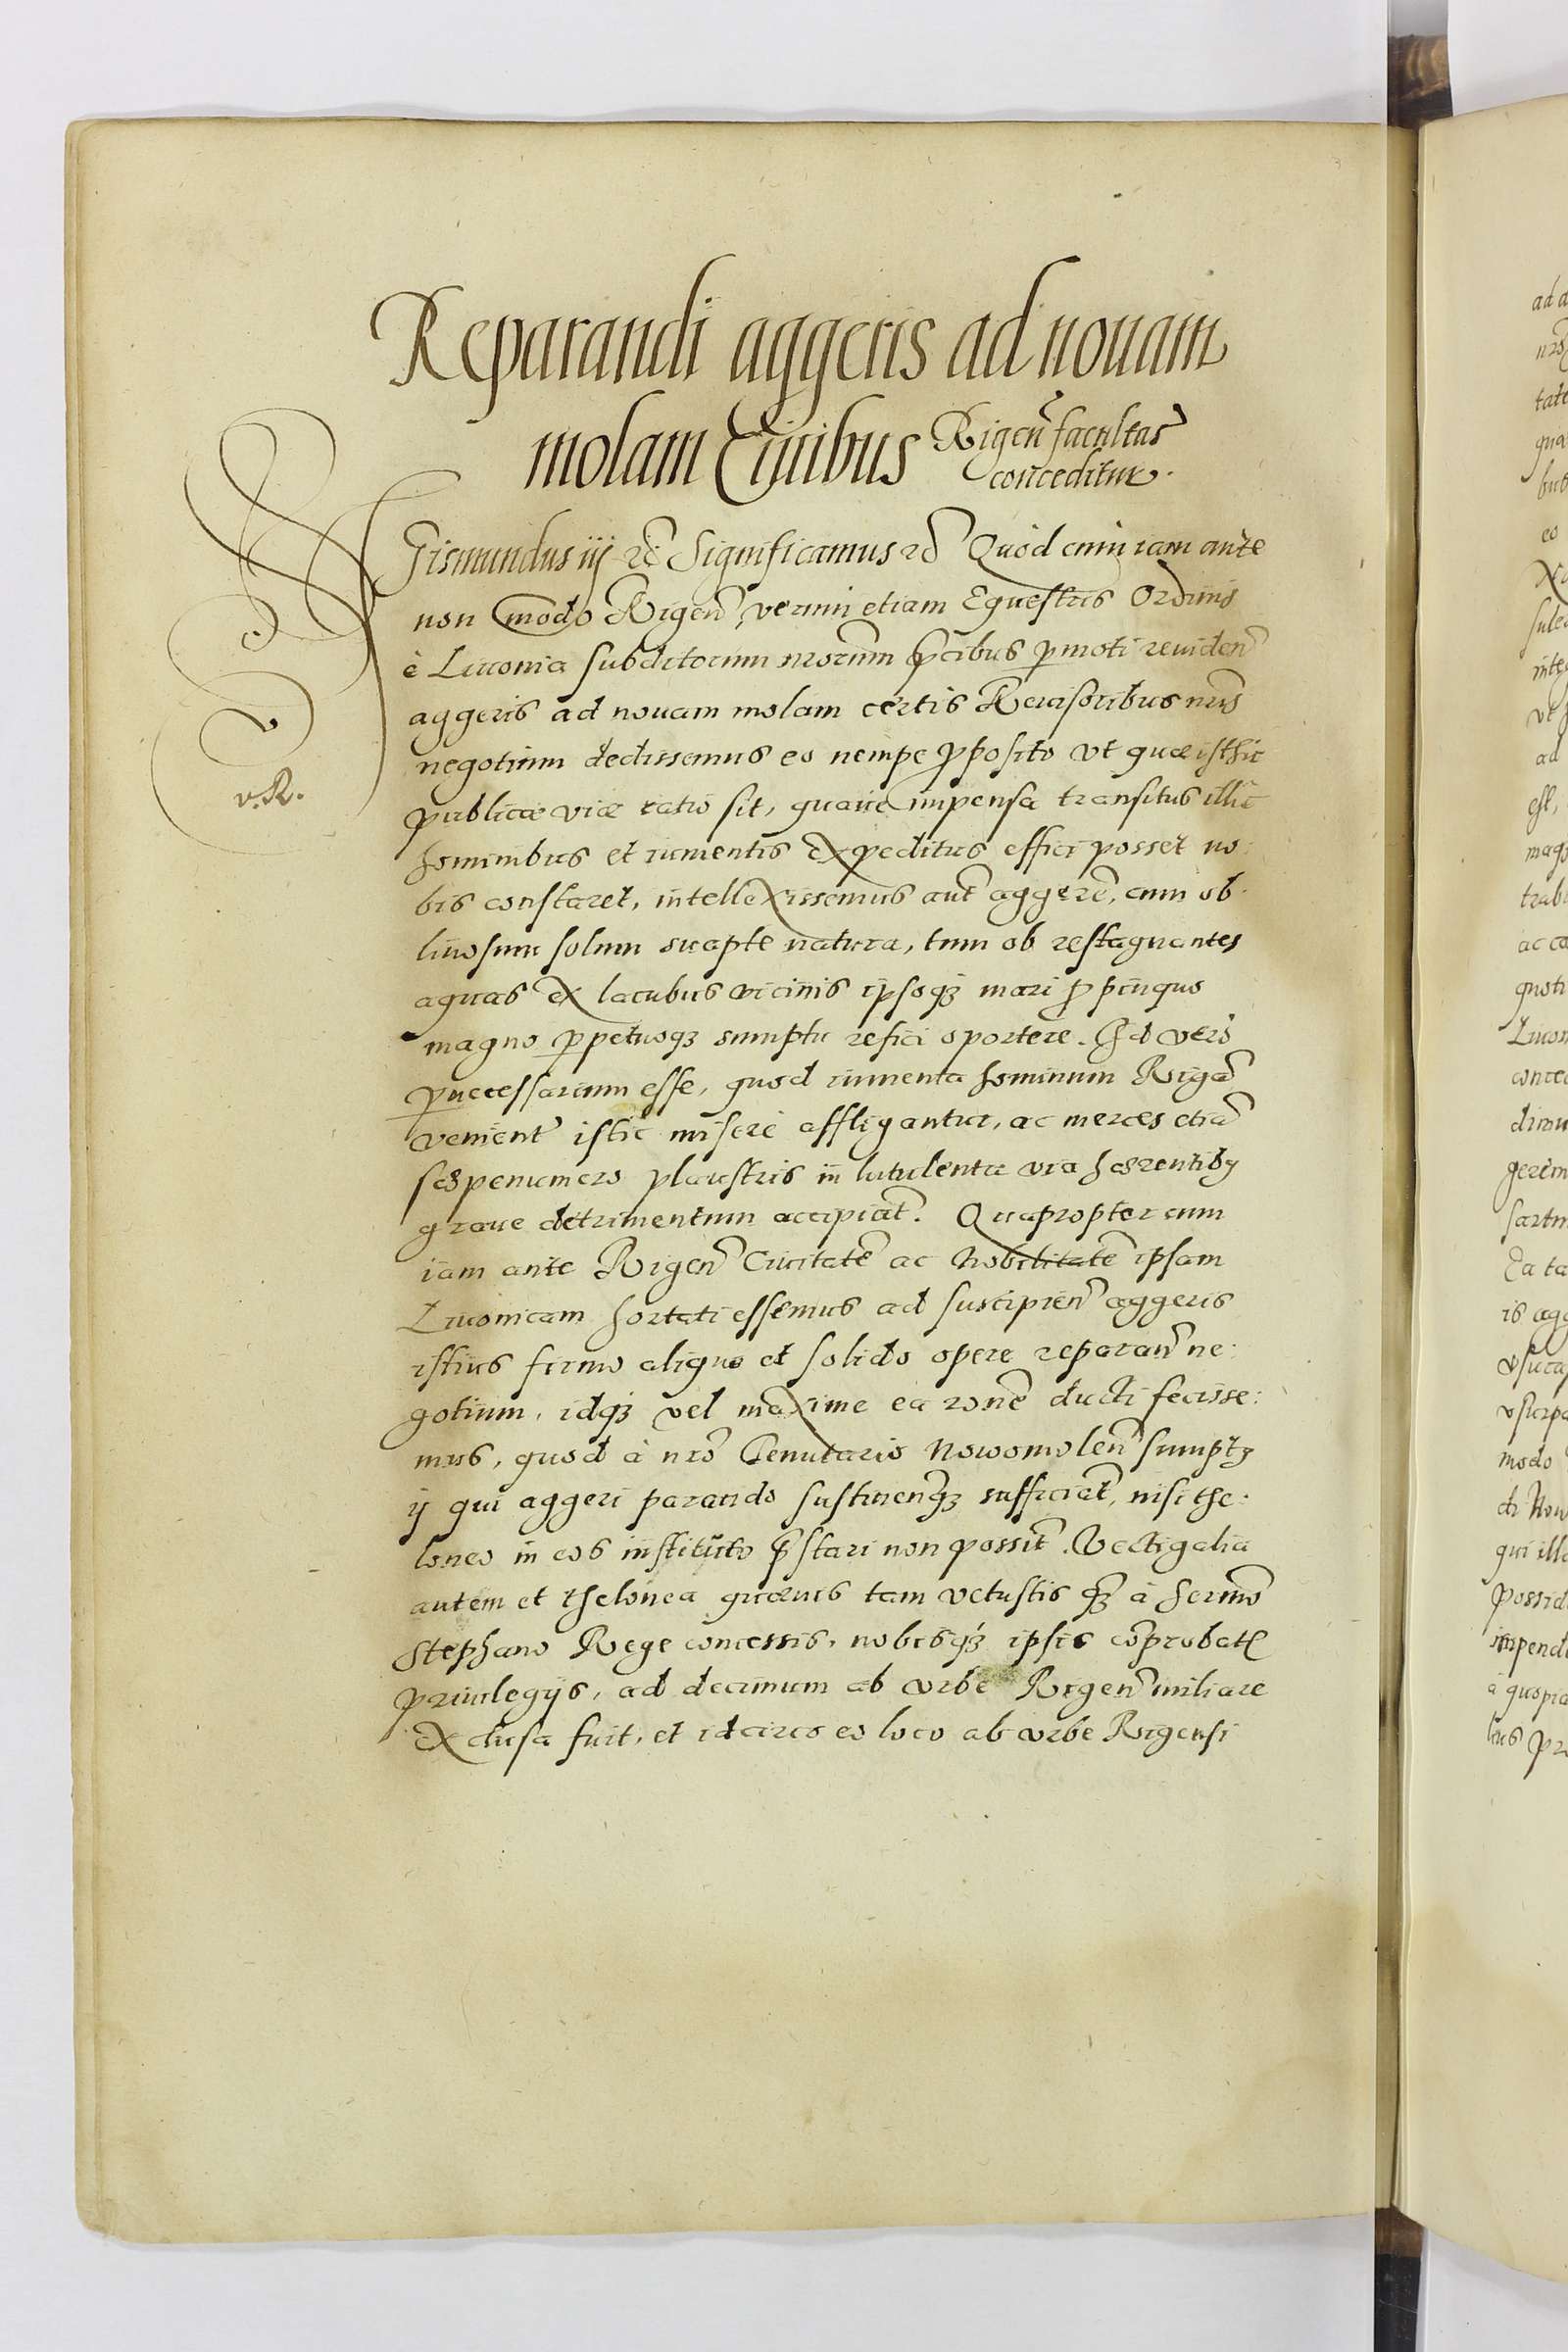 Reparandi aggeris ad nouam
molam Ciuibus Rigen̄ facultas
conceditur.
SGismundus iij etc̃ Significamus etc̃ Quòd cum iam ante
non modo Rigen̄, verum etiam Equestris Ordinis
è Liuonia subditorum nrorum p̃cibus ꝑmoti reuiden̄
aggeris ad nouam molam certis Reuisoribus nris̃
negotium dedissemus eo nempe ꝓposito vt quæ isthic
v. R.
publicæ viæ ratio sit, quaue impensa transitus illic
hominibus et iumentis expeditus effici posset no:
bis constaret, intellexissemus aut̃ aggerē, cum ob
limosum solum suapte natura, tum ob restagnantes
aquas ex lacubus vicinis ipsoqꝫ mari ꝓpinquo
magno ꝑpetuoqꝫ sumptu refici oportere. Id vero
ꝑnecessarium esse, quod iumenta hominum Rigā
venient̃ istic miserè affligantur, ac merces etiā
sæpenumero plaustris in lutulenta via hærentibꝫ
graue detrimentum accipiāt. Quapropter cum
iam ante Rigen̄ Ciuitatē ac Nobilitatē ipsam
Liuonicam hortati essemus ad suscipien̄ aggeris
istius firmo aliquo et solido opere reparan̄ ne:
gotium, idqꝫ vel maxime ea rōne ducti fecisse:
mus, quod à nro Tenutario Nowomolen̄ sumptꝫ
ij qui aggeri parando sustinen̄qꝫ sufficiāt, nisi the:
loneo in eos instituto p̃stari non possit̃. Vectigalia
autem et thelonea quæuis tam vetustis qꝫ à Sermo
Stephano Rege concessis, nobisqꝫ ipsis cōprobatꝭ
priuilegijs, ad decimum ab vrbe Rigen̄ miliare
exclusa fuit, et idcirco eo loco ab vrbe Rigensi